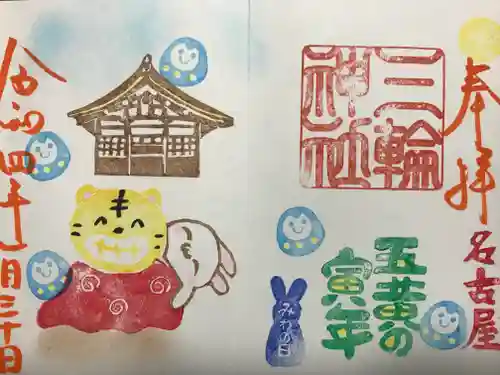 奉拝
名古屋
三輪
神社
五黄の
寅年
みわの日
令和四年一月三十日